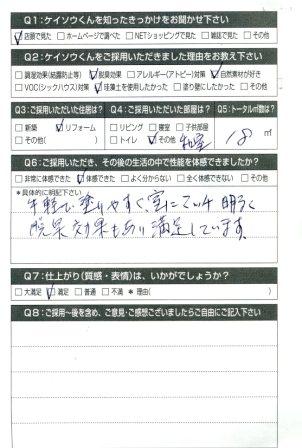 Q1：ケイソウくんを知ったきっかけをお聞かせ下さい
☑店頭で見た □ホームページで調べた □NETショッピングで見た □雑誌で見た □その他
Q2：ケイソウくんをご採用いただきました理由をお教え下さい
□調湿効果(結露防止等) ☑脱臭効果 □アレルギー(アトピー)対策 ☑自然素材が好き
□VOC(シックハウス)対策 ☑珪藻土を使用したかった □塗り壁にしたかった □その他
Q3：ご採用いただいた住居は？ Q4：ご採用いただいた部屋は？ Q5：トータル㎡数は？
□新築 ☑リフォーム □リビング □寝室 □子供部屋
□その他( ) □トイレ ☑その他 和室 18 ㎡
Q6：ご採用いただき、その後の生活の中で性能を体感できましたか？
□非常に体感できた ☑体感できた □よく分からない □全く体感できない □その他
＊具体的に明記下さい
手軽で塗りやすく、室にても明るく
脱臭効果もあり満足しています。
Q7：仕上がり(質感・表情)は、いかがでしょうか？
□大満足 ☑満足 □普通 □不満 ＊理由( )
Q8：ご採用〜後を含め、ご意見・ご感想ございましたらご自由にご記入下さい